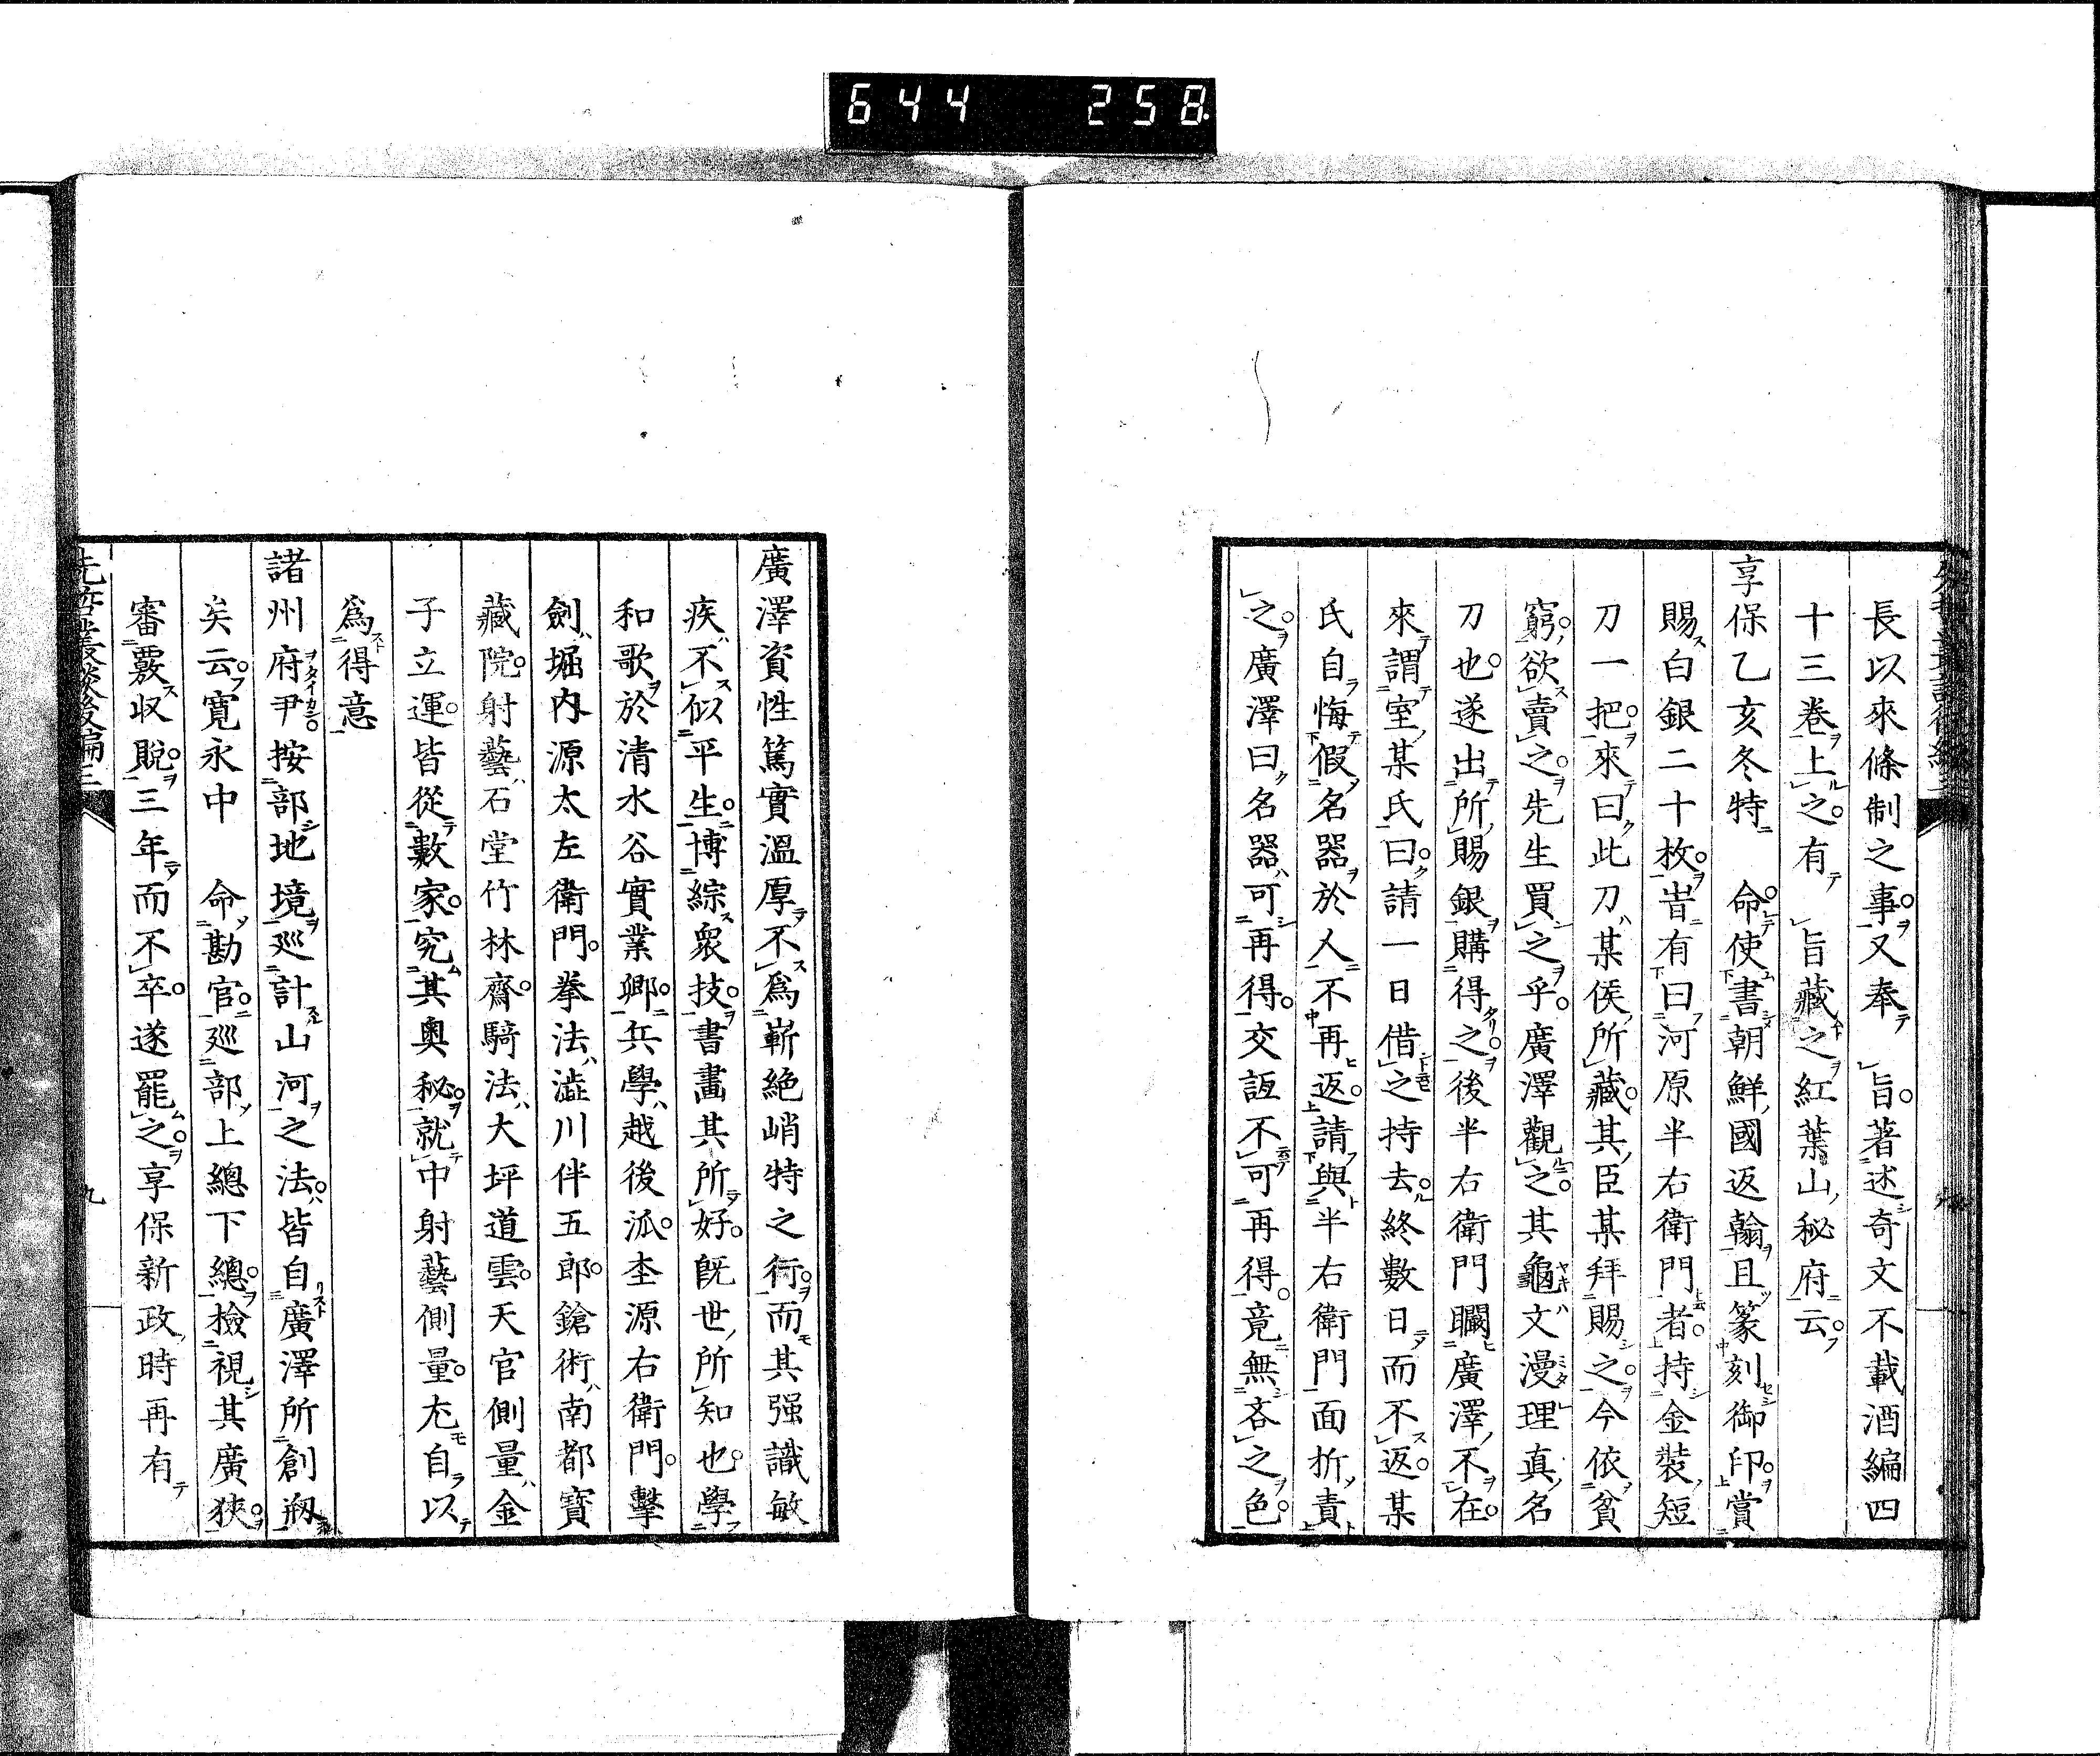 644 258
長以來條制之事又奉 旨著述奇文不載酒編四
十三卷上之有 旨藏之紅葉山秘府云
享保乙亥冬特 命使書朝鮮國返翰且篆刻御印賞
賜白銀二十枚時有曰河原半右衛門者持金裝短
刀一把來曰此刀某侯所藏其臣某拜賜之今依貧
窮欲賣之先生買之乎廣澤觀之其龜文漫理真名
刀也遂出所賜銀購得之後半右衛門矙廣澤不在
來謂室某氏曰請一日借之持去終數日而不返某
氏自悔假名器於人不再返請與半右衛門面折責
之廣澤曰名器可再得交誼不可再得竟無吝之色
廣澤資性篤實溫厚不為嶄絕峭特之行而其强識敏
疾不似平生博綜衆技書畵其所好既世所知也學
和歌於清水谷實業卿兵學越後派杢源右衛門擊
劍堀内源太左衛門拳法澁川伴五郎鎗術南都寳
藏院射藝石堂竹林齋騎法大坪道雲天官側量金
子立運皆從數家究其奧秘就中射藝側量尤自以
為得意
諸州府尹按部地境巡計山河之法皆自廣澤所創剏
矣云寬永中 命勘官巡部上總下總檢視其廣狹
審覈収賦三年而不卒遂罷之享保新政時再有
先哲叢談後編三
九